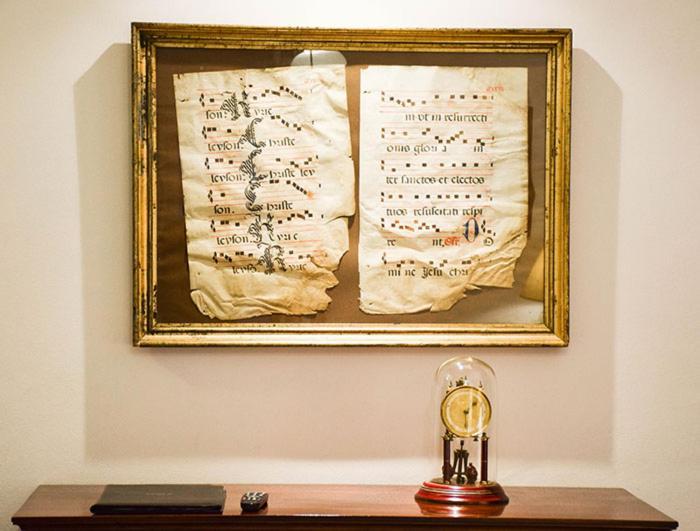 son. Kyrie
leyson. Christe
leyson. Christe ley
son. Christe
leyson. Kyrie
leyson. Kyrie
ut in resurrecti
onis gloria in
ter sanctos et electos
tuos resuscitati respi
rent. Off. D
mine Jesu chri